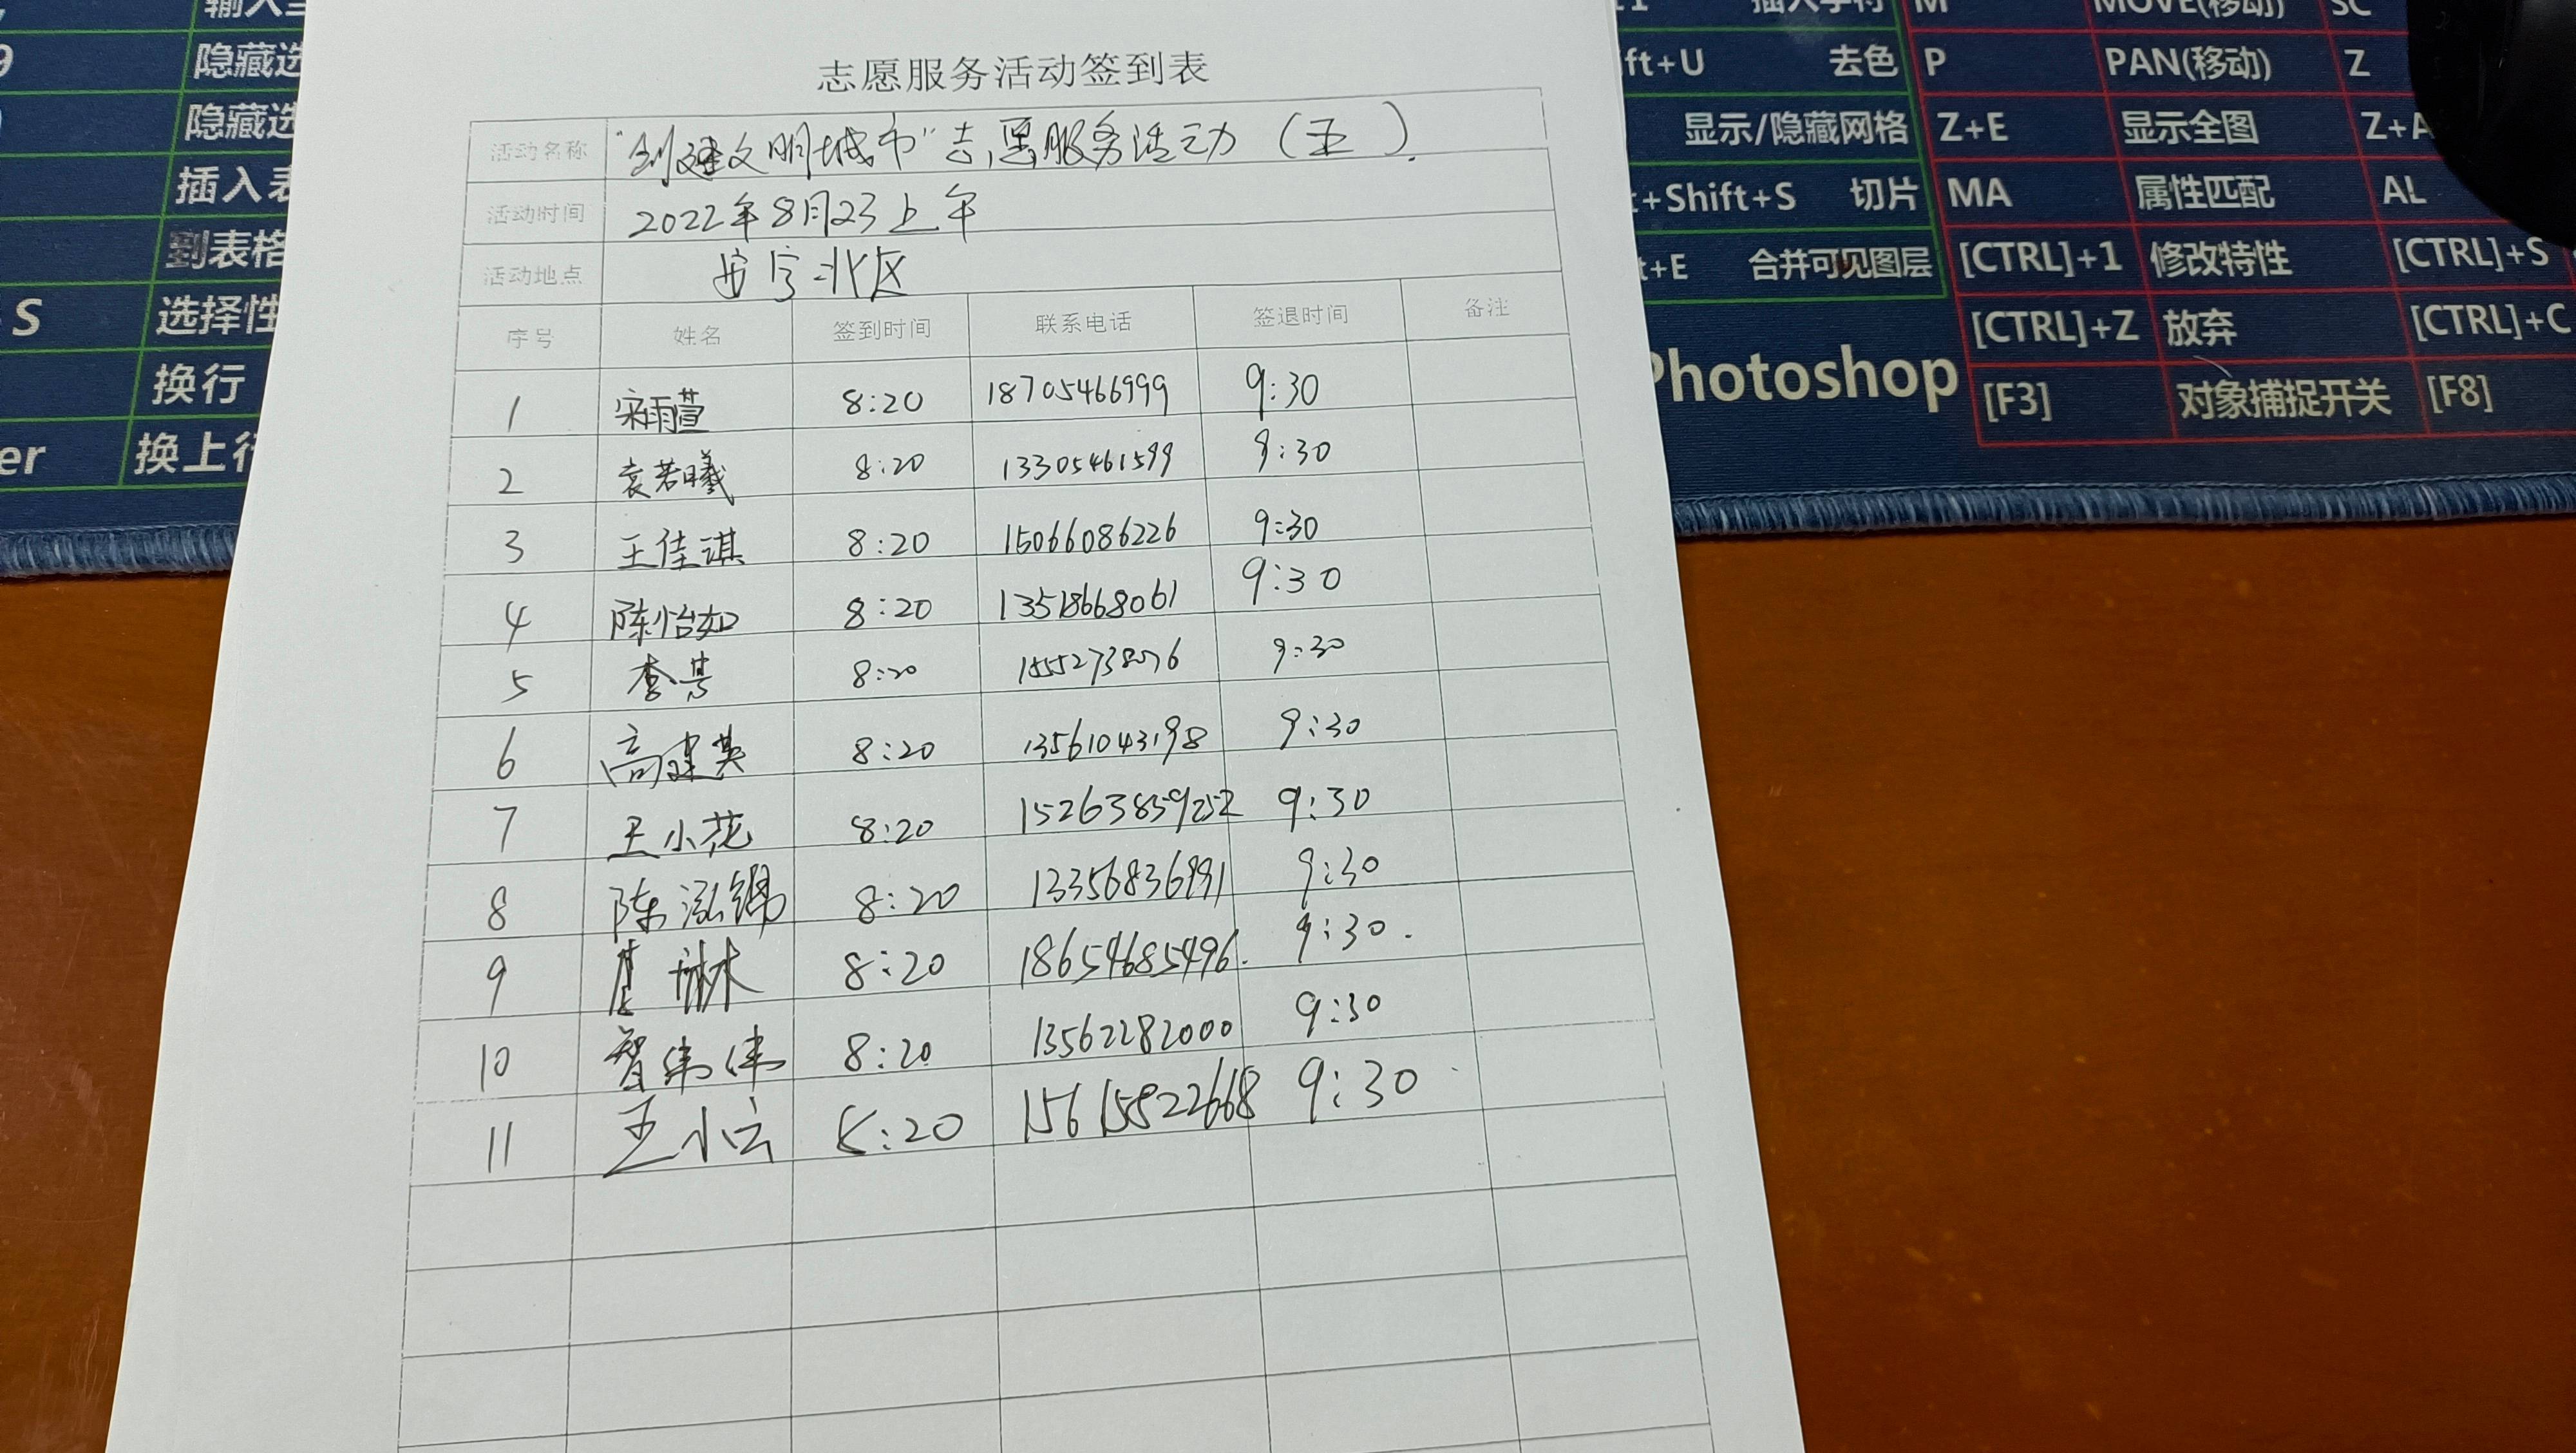 志愿服务活动签到表
活动名称 "创建文明城市"志愿服务活动（五）.
活动时间 2022年8月23上午
活动地点 安宁北区
序号 姓名 签到时间 联系电话 签退时间 备注
1 宋雨萱 8:20 18705466999 9:30
2 袁若曦 8:20 13305461599 9:30
3 王佳琪 8:20 15066086226 9:30
4 陈怡如 8:20 13518668061 9:30
5 李 8:20 9:30
6 高建英 8:20 13561043198 9:30
7 王小花 8:20 15263859252 9:30
8 陈泓锦 8:20 13356836991 9:30
9 琳 8:20 18654685496. 9:30.
10 智伟伟 8:20 13562282000 9:30
11 王小云 8:20 15615822668 9:30
9 隐藏选
隐藏选
插入表
到表格
S 选择性
换行
er 换上行
插入字符
ft+U 去色
显示/隐藏网格
t+Shift+S 切片
t+E 合并可见图层
Photoshop
M MOVE(移动) SC
P PAN(移动) Z
Z+E 显示全图 Z+A
MA 属性匹配 AL
[CTRL]+1 修改特性 [CTRL]+S
[CTRL]+Z 放弃 [CTRL]+C
[F3] 对象捕捉开关 [F8]